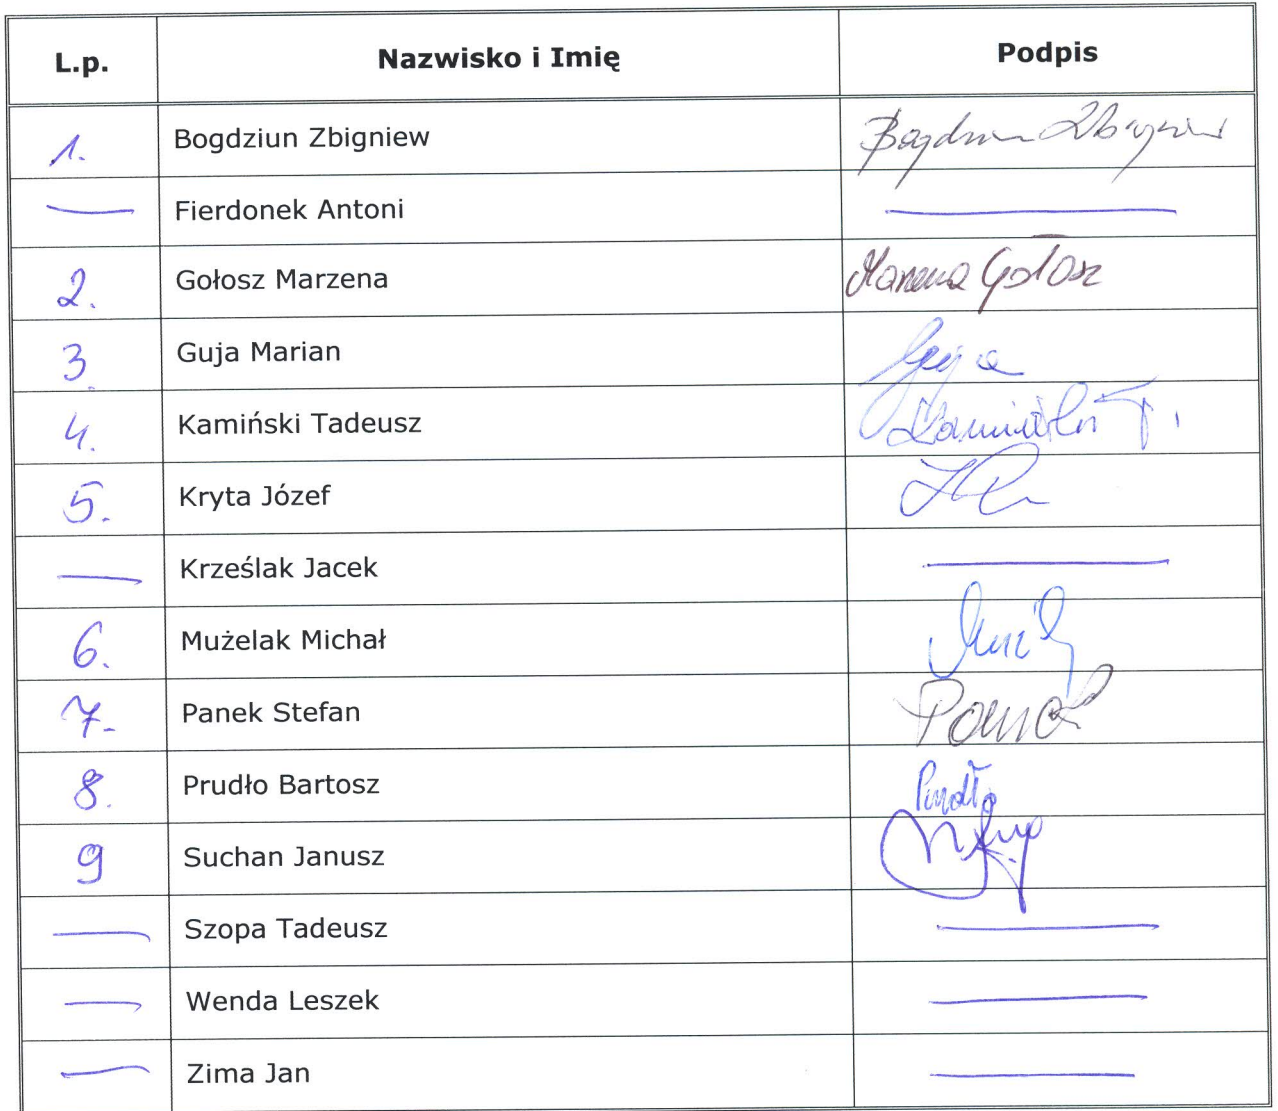 L.p. Nazwisko i Imię Podpis
1. Bogdziun Zbigniew Bogdziun Zbigniew
Fierdonek Antoni
2. Gołosz Marzena Marzena Gołosz
3. Guja Marian Guja
4. Kamiński Tadeusz Kamiński T.
5. Kryta Józef
Krześlak Jacek
6. Mużelak Michał
7. Panek Stefan Panek
8. Prudło Bartosz Prudło
9 Suchan Janusz
Szopa Tadeusz
Wenda Leszek
Zima Jan